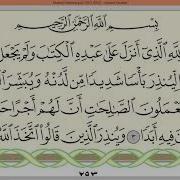 بِسْمِ ٱللَّهِ ٱلرَّحْمَٰنِ ٱلرَّحِيمِ
لِلَّهِ ٱلَّذِىٓ أَنزَلَ عَلَىٰ عَبْدِهِ ٱلْكِتَٰبَ وَلَمْ يَجْعَل
لِّيُنذِرَ بَأْسًا شَدِيدًا مِّن لَّدُنْهُ وَيُبَشِّرَ
يَعْمَلُونَ ٱلصَّٰلِحَٰتِ أَنَّ لَهُمْ أَجْرًا
فِيهِ أَبَدًا ٣ وَيُنذِرَ ٱلَّذِينَ قَالُوا۟ ٱتَّخَذَ ٱللَّهُ